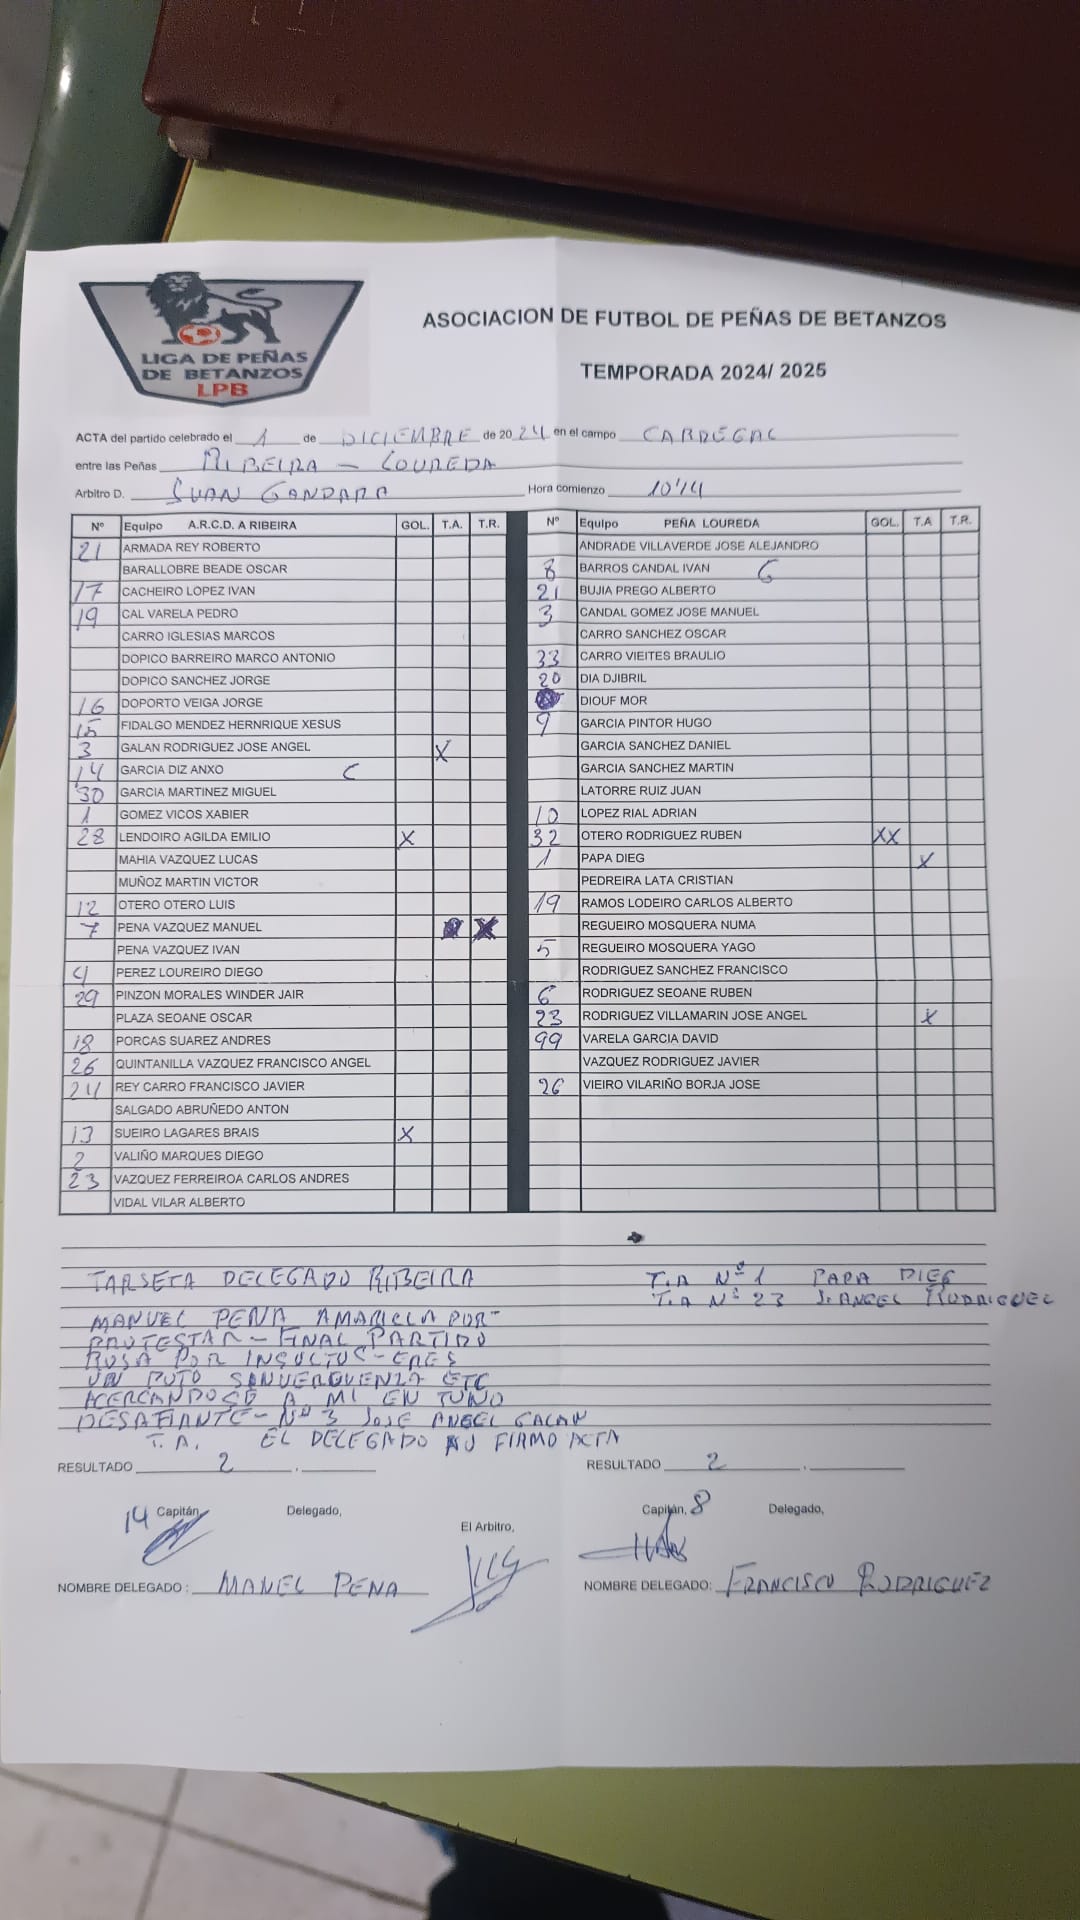 LIGA DE PEÑAS
DE BETANZOS
LPB
ASOCIACION DE FUTBOL DE PEÑAS DE BETANZOS
TEMPORADA 2024/ 2025
ACTA del partido celebrado el 1 de DICIEMBRE de 2024 en el campo CARREGAL
entre las Peñas RIBEIRA - LOUREDA
Arbitro D. JUAN GANDARA Hora comienzo 10'14
Nº Equipo A.R.C.D. A RIBEIRA GOL. T.A. T.R. Nº Equipo PEÑA LOUREDA GOL. T.A T.R.
21 ARMADA REY ROBERTO ANDRADE VILLAVERDE JOSE ALEJANDRO
BARALLOBRE BEADE OSCAR 8 BARROS CANDAL IVAN C
17 CACHEIRO LOPEZ IVAN 21 BUJIA PREGO ALBERTO
19 CAL VARELA PEDRO 3 CANDAL GOMEZ JOSE MANUEL
CARRO IGLESIAS MARCOS CARRO SANCHEZ OSCAR
DOPICO BARREIRO MARCO ANTONIO 33 CARRO VIEITES BRAULIO
DOPICO SANCHEZ JORGE 20 DIA DJIBRIL
16 DOPORTO VEIGA JORGE DIOUF MOR
15 FIDALGO MENDEZ HERNRIQUE XESUS 9 GARCIA PINTOR HUGO
3 GALAN RODRIGUEZ JOSE ANGEL X GARCIA SANCHEZ DANIEL
14 GARCIA DIZ ANXO C GARCIA SANCHEZ MARTIN
30 GARCIA MARTINEZ MIGUEL LATORRE RUIZ JUAN
1 GOMEZ VICOS XABIER 10 LOPEZ RIAL ADRIAN
28 LENDOIRO AGILDA EMILIO X 32 OTERO RODRIGUEZ RUBEN XX
MAHIA VAZQUEZ LUCAS 1 PAPA DIEG X
MUÑOZ MARTIN VICTOR PEDREIRA LATA CRISTIAN
12 OTERO OTERO LUIS 19 RAMOS LODEIRO CARLOS ALBERTO
7 PENA VAZQUEZ MANUEL X REGUEIRO MOSQUERA NUMA
PENA VAZQUEZ IVAN 5 REGUEIRO MOSQUERA YAGO
4 PEREZ LOUREIRO DIEGO RODRIGUEZ SANCHEZ FRANCISCO
29 PINZON MORALES WINDER JAIR 6 RODRIGUEZ SEOANE RUBEN
PLAZA SEOANE OSCAR 23 RODRIGUEZ VILLAMARIN JOSE ANGEL X
18 PORCAS SUAREZ ANDRES 99 VARELA GARCIA DAVID
26 QUINTANILLA VAZQUEZ FRANCISCO ANGEL VAZQUEZ RODRIGUEZ JAVIER
24 REY CARRO FRANCISCO JAVIER 26 VIEIRO VILARIÑO BORJA JOSE
SALGADO ABRUÑEDO ANTON
13 SUEIRO LAGARES BRAIS X
2 VALIÑO MARQUES DIEGO
23 VAZQUEZ FERREIROA CARLOS ANDRES
VIDAL VILAR ALBERTO
TARJETA DELEGADO RIBEIRA T.A Nº 1 PAPA DIEG
T.A Nº 23 J. ANGEL RODRIGUEL
MANUEL PENA AMARILLA POR
PROTESTAR - FINAL PARTIDO
ROJA POR INSULTOS - ERES
UN PUTO SANVERGUENZA ETC
ACERCANDOSE A MI EN TONO
DESAFIANTE - Nº 3 JOSE ANGEL GALAN
T.A. EL DELEGADO NO FIRMO ACTA
RESULTADO 2 RESULTADO 2
14 Capitán, Delegado, El Arbitro, Capitán, 8 Delegado,
NOMBRE DELEGADO : MANEL PENA NOMBRE DELEGADO: FRANCISCO RODRIGUEZ